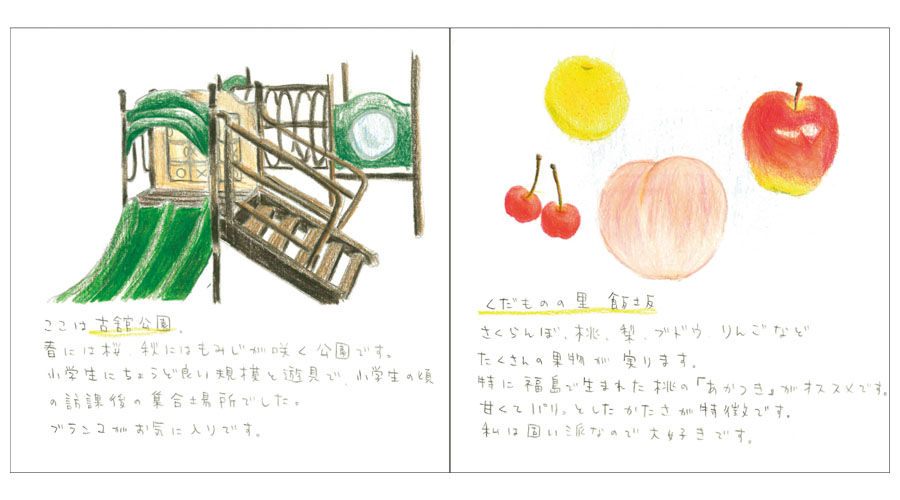 ここは古舘公園。
春には桜、秋にはもみじが咲く公園です。
小学生にちょうど良い規模と遊具で、小学生の頃
の訪課後の集合場所でした。
ブランコがお気に入りです。
くだものの里 飯坂
さくらんぼ、桃、梨、ブドウ、りんごなど
たくさんの果物が実ります。
特に福島で生まれた桃の「あかつき」がオススメです。
甘くてパリッとしたかたさが特徴です。
私は固い派なので大好きです。